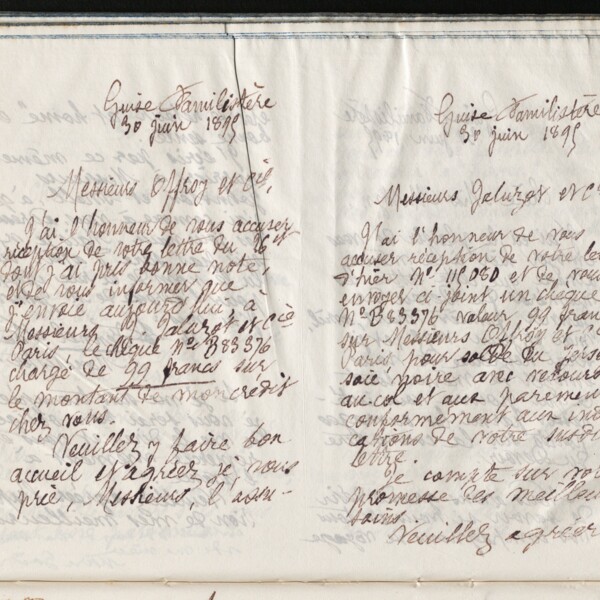 Guise Familistère
30 juin 1895
Messieurs Offroy et Cie,
J'ai l'honneur de vous accuser
réception de votre lettre du 26 ct
dont j'ai pris bonne note,
et de vous informer que
j'envoie aujourd'hui, à
Messieurs Jaluzot et Cie
Paris, le chèque No B83376
chargé de 99 francs sur
le montant de mon crédit
chez vous.
Veuillez y faire bon
accueil et agréer, je vous
prie, Messieurs, l'assu-
Guise Familistère
30 juin 1895
Messieurs Jaluzot et C
J'ai l'honneur de vous
accuser réception de votre le
d'hier No 110080 et de vou
envoyer ci-joint un chèque
No B83376 valeur 99 fran
sur Messieurs Offroy et
Paris, pour solde du jerse
soie noire avec velours
au col et aux paremen
conformément aux in
cations de votre susdi
lettre.
Je compte sur vo
promesse des meilleu
soins.
Veuillez agréer